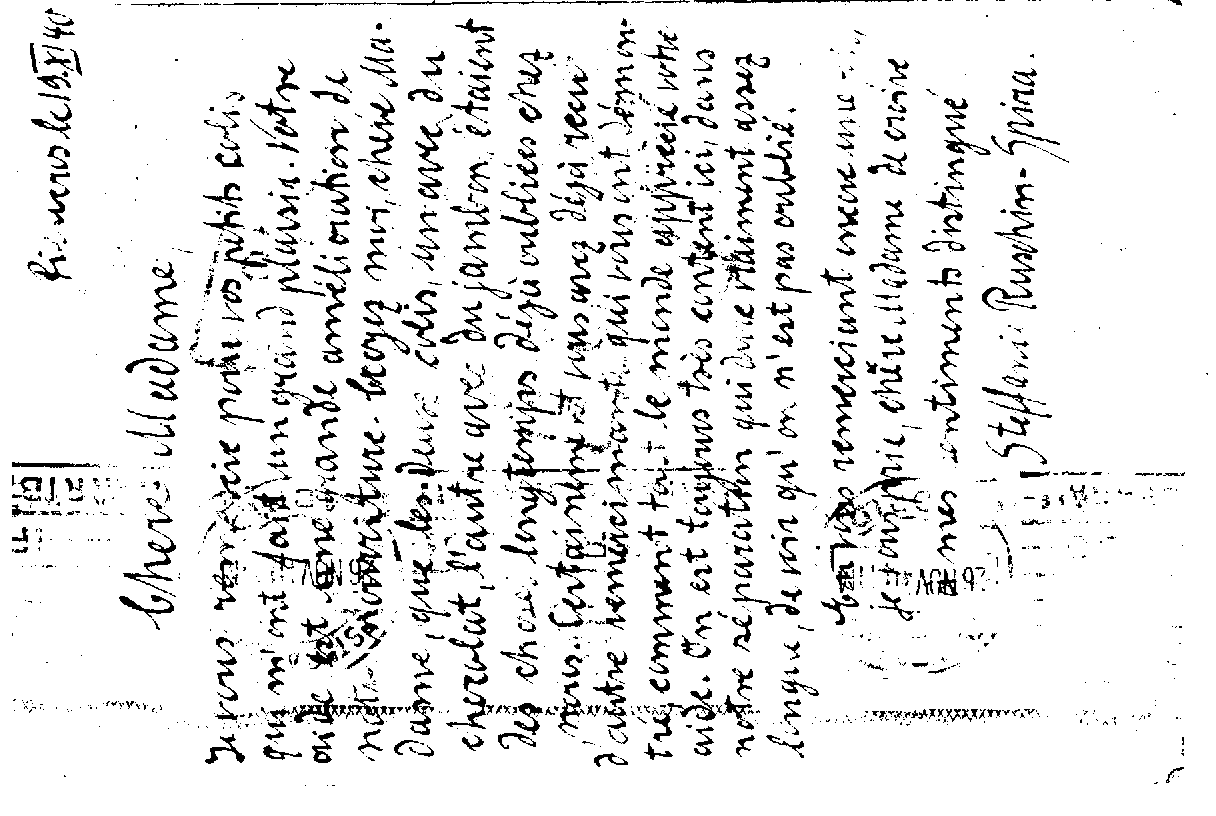 le 19.XI 40
Chere Madame,
Je vous remercie pour vos petits colis
qui m'ont fait un grand plaisir. Votre
aide est une grande amélioration de
notre nourriture. Croyez moi, chère Ma-
dame, que les deux colis, un avec du
chocolat, l'autre avec du jambon, étaient
des choses longtemps déjà oubliées chez
nous. Certainement vous avez déjà reçu
d'autre remerciments qui vous ont démon-
tré, comment tout le monde apprécie votre
aide. On est toujours très content ici, dans
notre séparation qui dure vraiment assez
longue, de voir qu'on n'est pas oublié.
En vous remerciant encore une
je vous prie, chère Madame de croire
mes sentiments distingué
Steffani Ruschin-Spira.
26 NOV